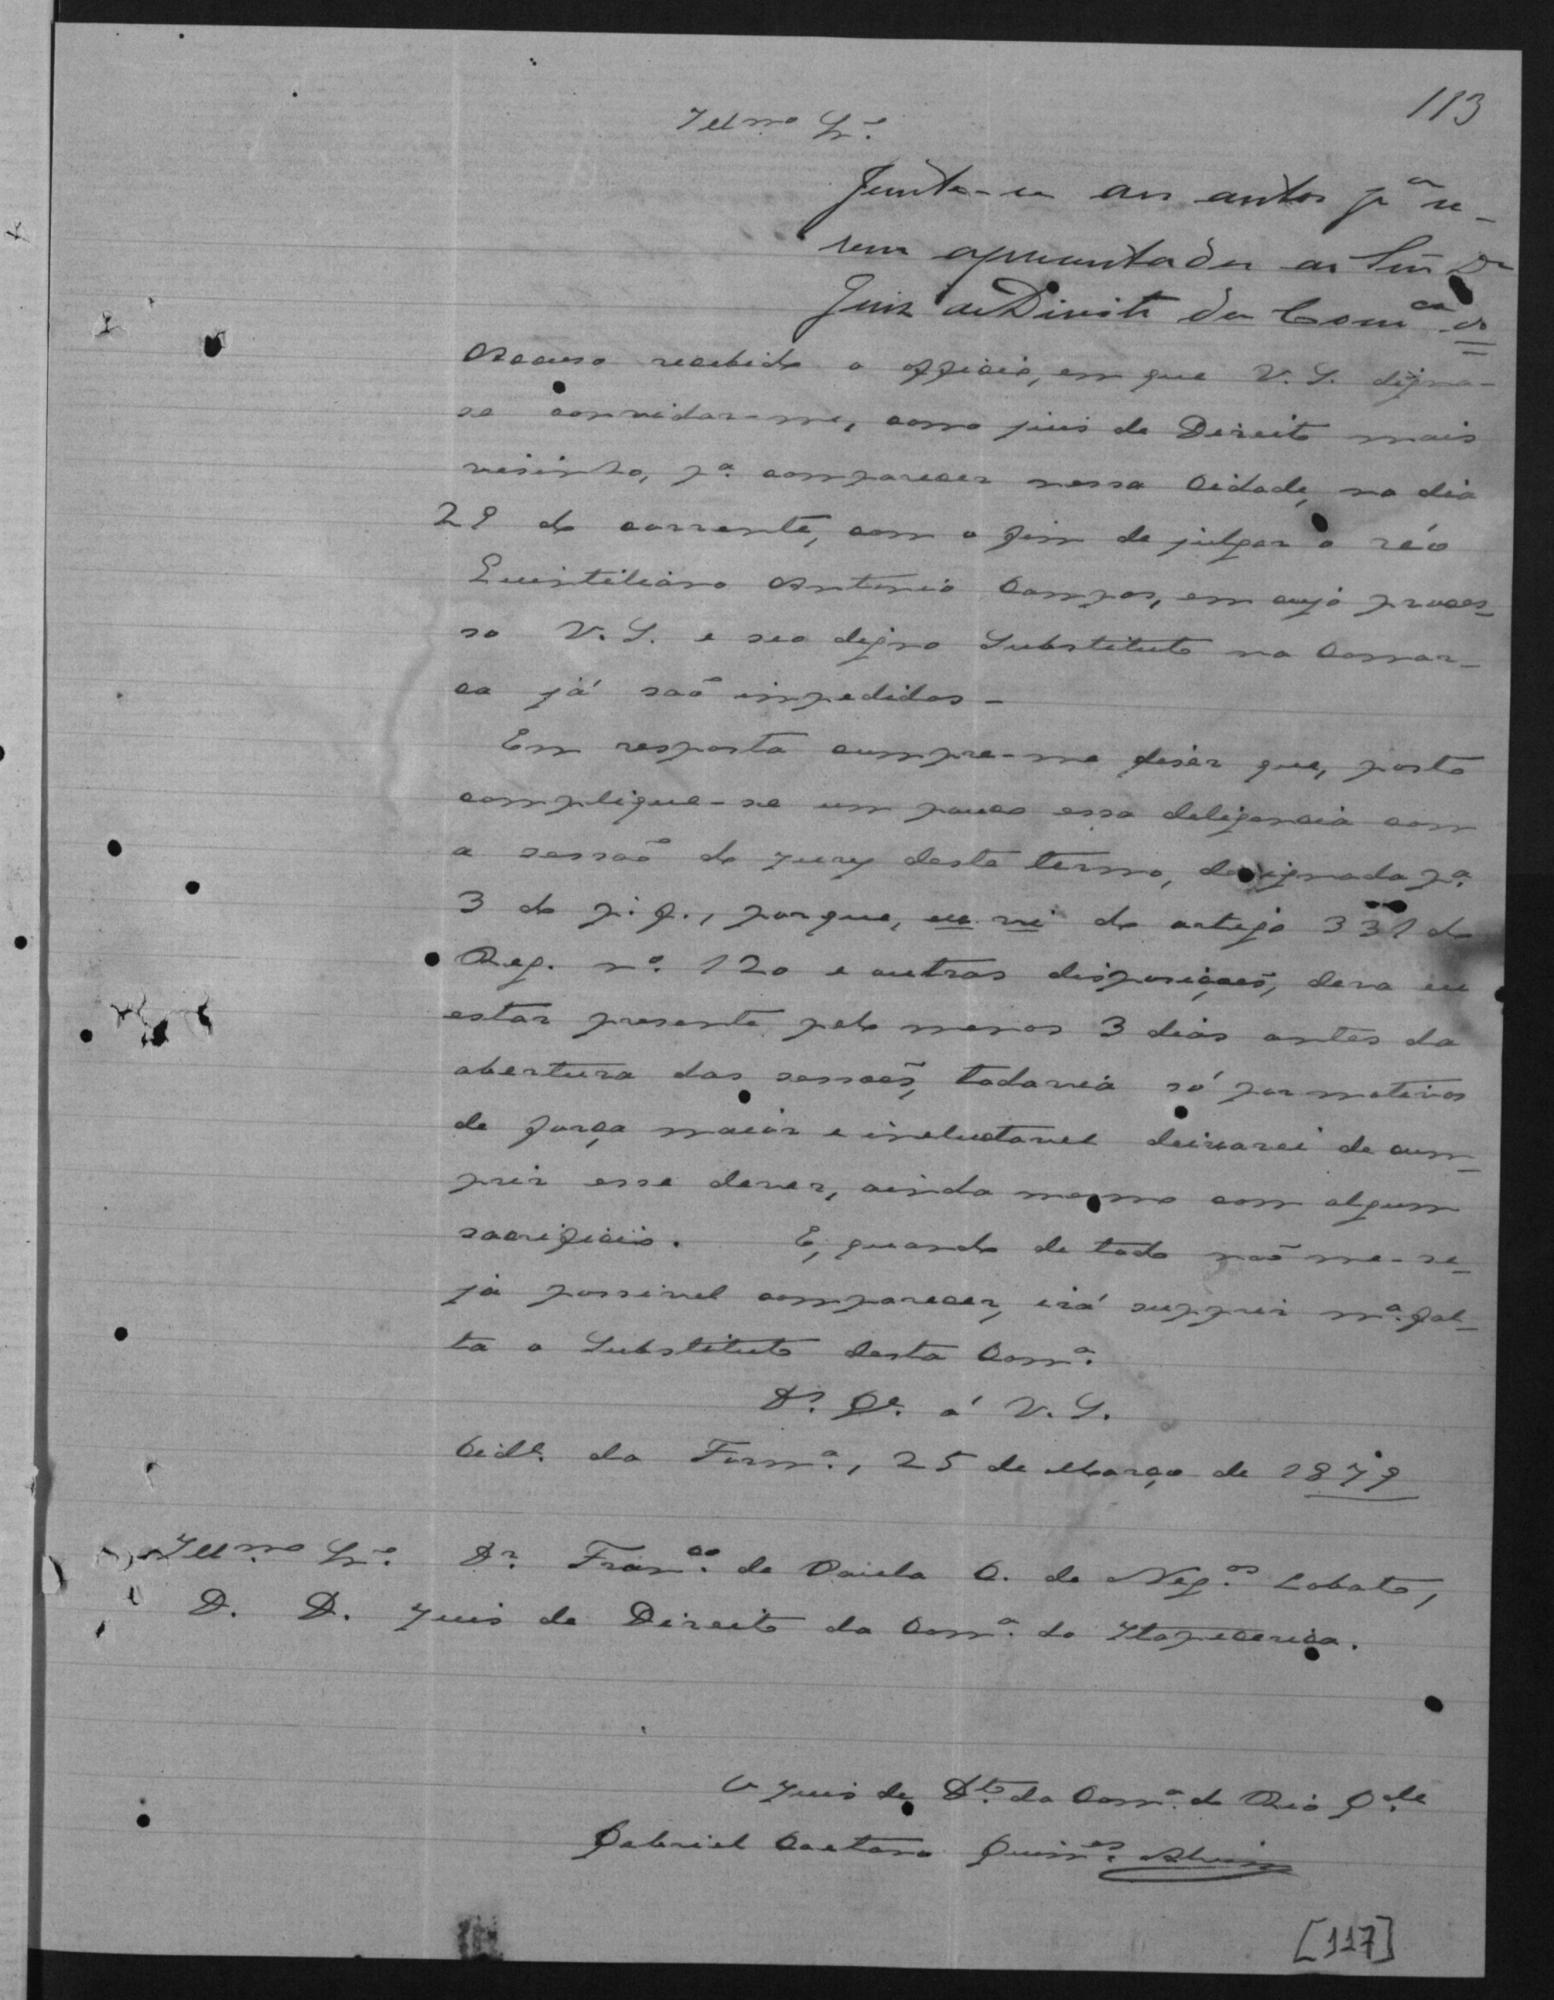 113
Illmo Snr.
Junte-se aos autos pª se-
rem apresentados ao Snr Dr
Juiz de Direito da Comca
Accuso recebido o officio, em que V. S. digna-
se convidar-me, como juis de Direito mais
visinho, pª. comparecer nessa Cidade, no dia
29 do corrente, com o fim de julgar o réo
Quintiliano Antonio Campos, em cujo proces-
so V. S. e seo digno Substituto na Comar-
ca já saõ impedidos -
Em resposta cumpre-me diser que, posto
complique-se um pouco essa deligencia com
a sessaõ do jury deste termo, designada pª.
3 do p. f., porque, ex vi do artigo 331 do
Reg. nº. 120 e outras disposiçoẽs, deva eu
estar presente pelo menos 3 dias antes da
abertura das sessoẽs, todavia só por motivos
de força maior e ineluctavel deixarei de cum-
prir esse dever, ainda mesmo com algum
sacrificio. E, quando de todo naõ me-se-
ja possivel comparecer, irá supprir mª. fal-
ta o Substituto desta Comª.
Ds. Ge. á V. S.
Cide. da Formª., 25 de Março de 1879
Illmo Snr. Dr. Franco. de Paula C. de Negos. Lobato,
D. D. Juis de Direito da Comª. do Itapecerica.
O Juis de Dto. da Comª. do Rio Gde.
Gabriel Caetano Guimes. Alvim
[117]